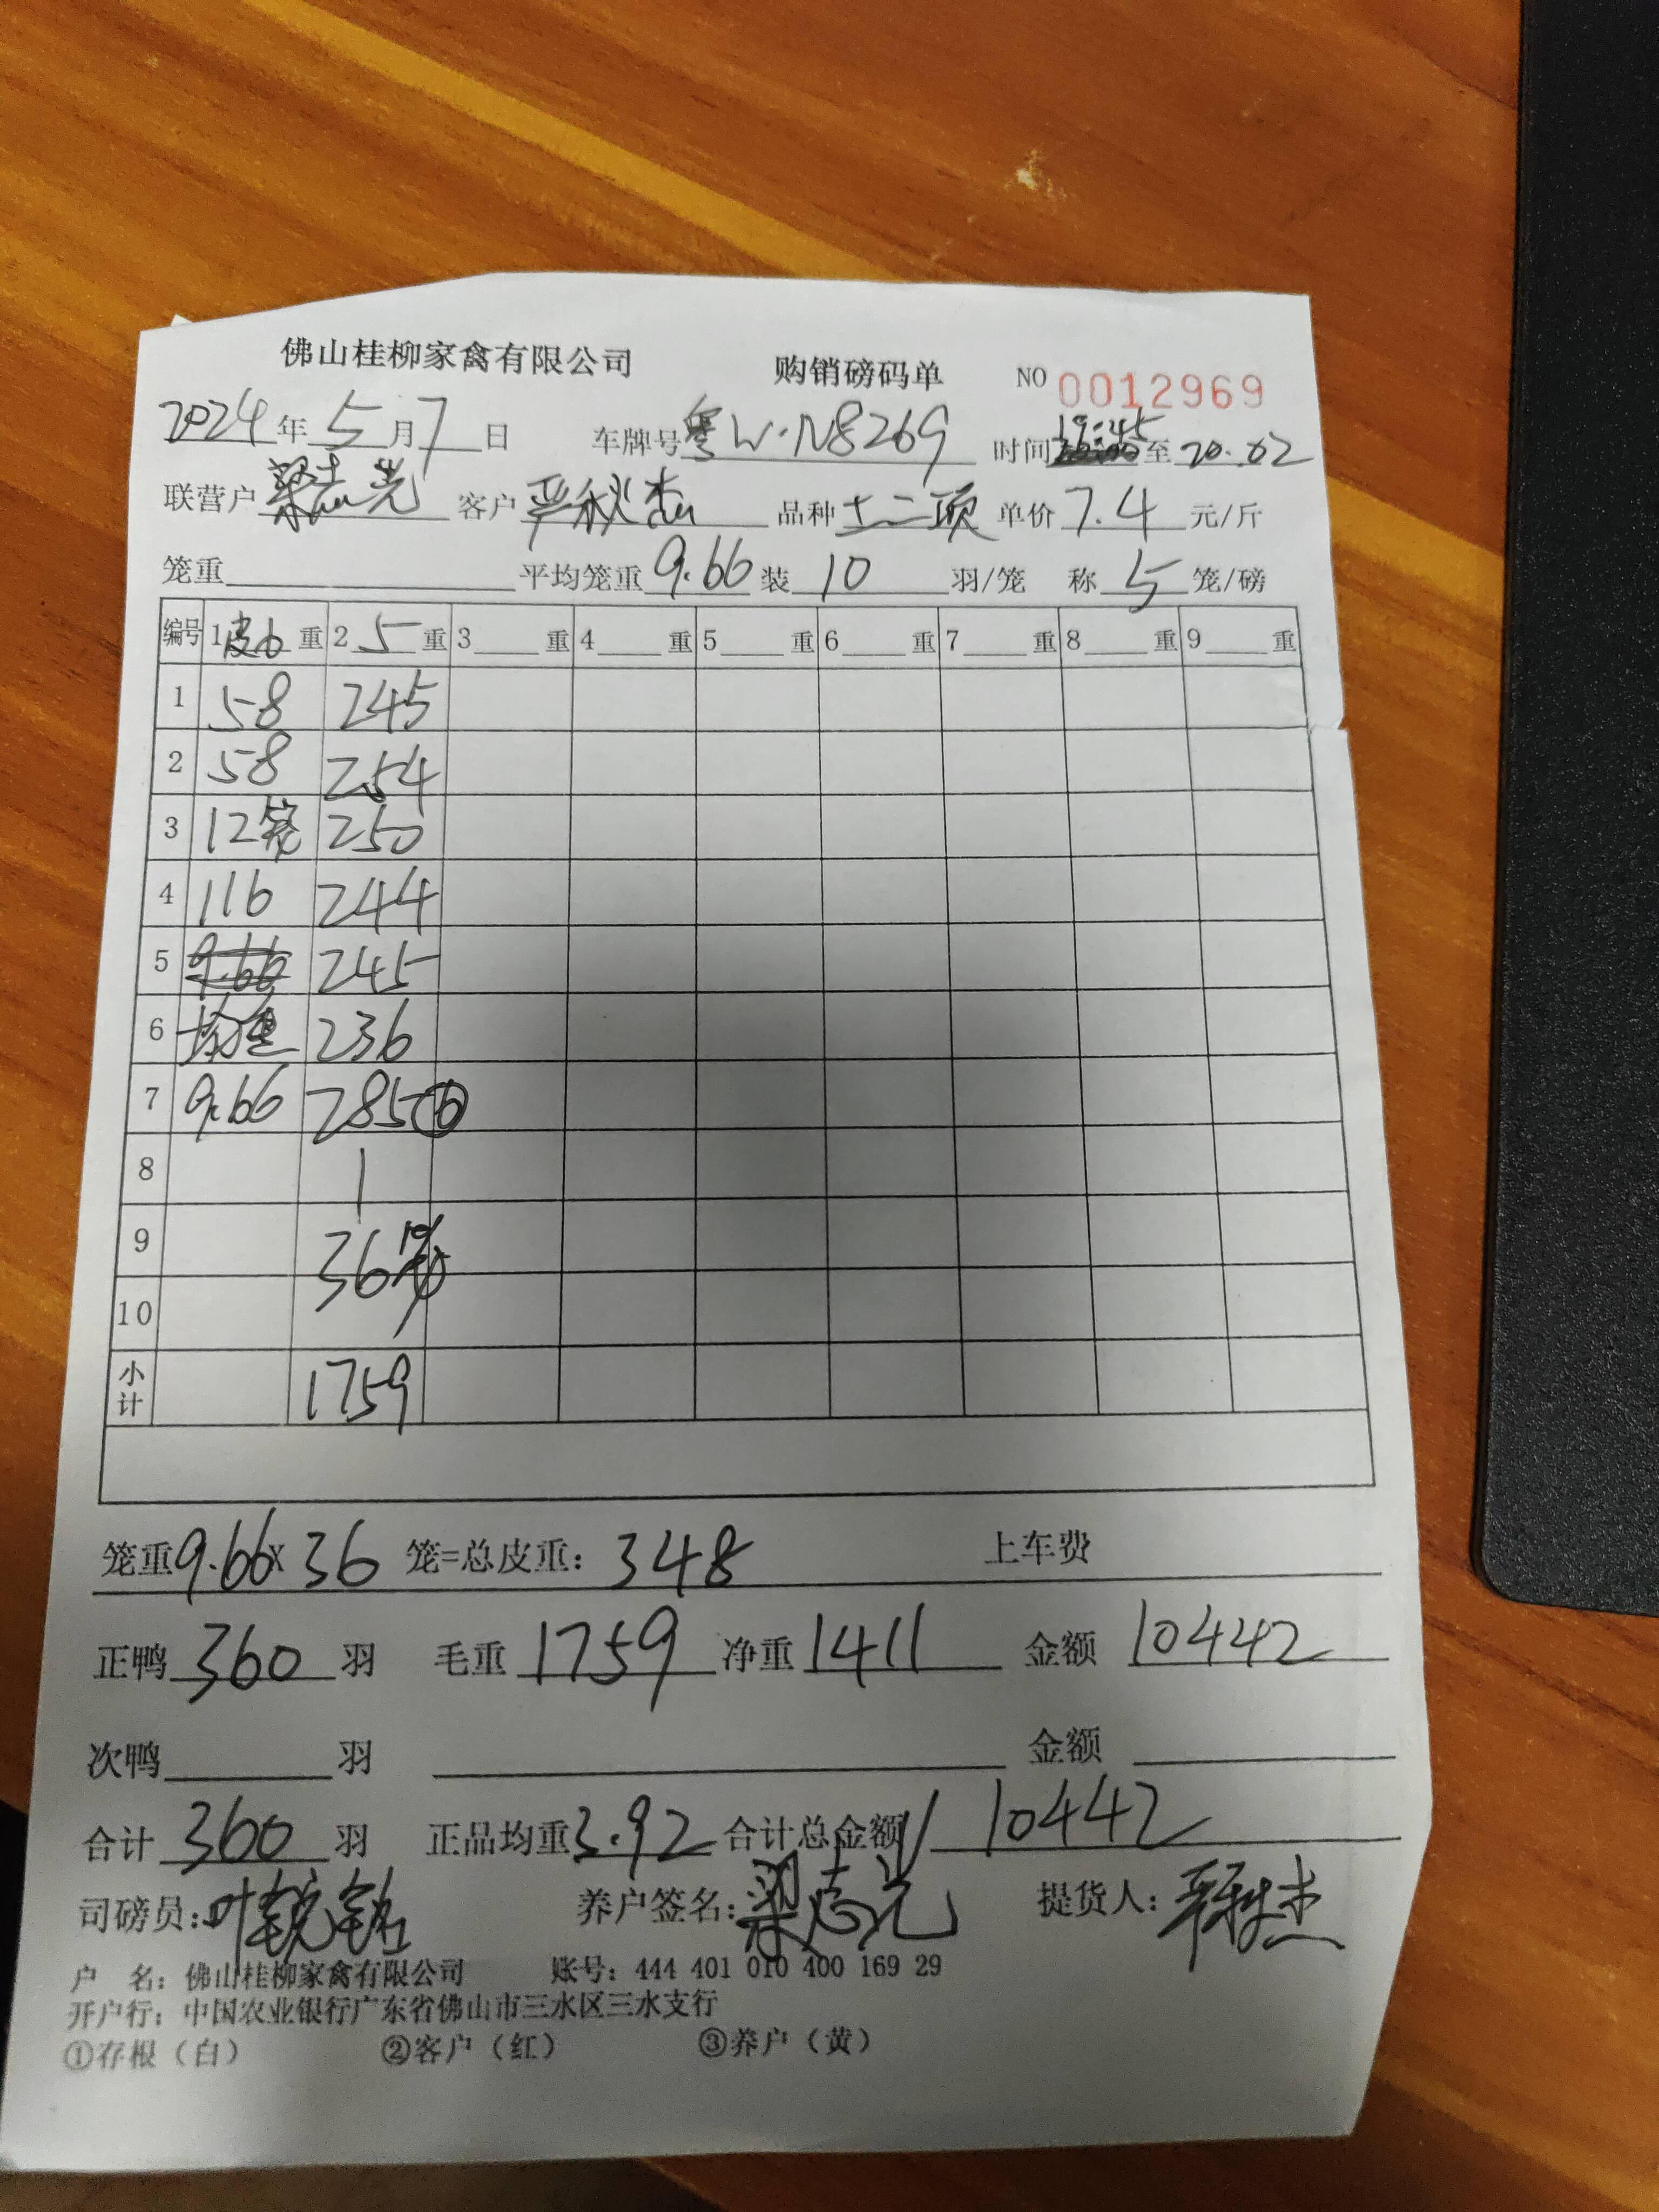 佛山桂柳家禽有限公司 购销磅码单 NO 0012969
2024年5月7日 车牌号粤W·N8269 时间19:45至20:02
联营户梁志光 客户严秋杰 品种土二项 单价7.4元/斤
笼重 平均笼重9.66装10羽/笼 称5笼/磅
编号 1皮6重 2 5重 3 重 4 重 5 重 6 重 7 重 8 重 9 重
1 58 245
2 58 254
3 12笼 250
4 116 244
5 9.66 245
6 均重 236
7 9.66 285⑥
8 |
9 36笼
10
小计 1759
笼重9.66X36笼=总皮重：348 上车费
正鸭360羽 毛重1759净重1411 金额10442
次鸭 羽 金额
合计360羽 正品均重3.92合计总金额10442
司磅员：叶锐铭 养户签名：梁志光 提货人：
户 名：佛山桂柳家禽有限公司 账号：444 401 010 400 169 29
开户行：中国农业银行广东省佛山市三水区三水支行
①存根（白） ②客户（红） ③养户（黄）